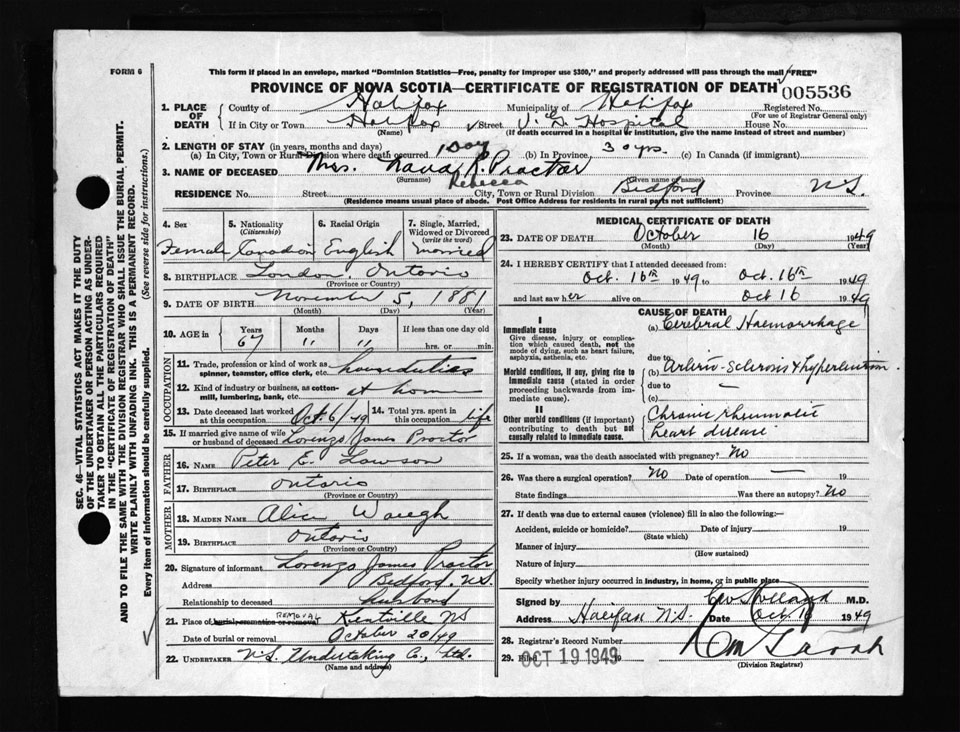 FORM 6
This form if placed in an envelope, marked "Dominion Statistics—Free, penalty for improper use $300," and properly addressed will pass through the mail "FREE"
PROVINCE OF NOVA SCOTIA—CERTIFICATE OF REGISTRATION OF DEATH
005536
1. PLACE OF DEATH
County of Halifax Municipality of Halifax Registered No.
(For use of Registrar General only)
If in City or Town Halifax Street V. G. Hospital House No.
(Name) (If death occurred in a hospital or institution, give the name instead of street and number)
2. LENGTH OF STAY (in years, months and days)
(a) In City, Town or Rural Division where death occurred 1 Day (b) In Province 30 yrs. (c) In Canada (if immigrant)
3. NAME OF DECEASED Mrs. R. Proctor
Rebecca
(Surname) (Given name or names)
RESIDENCE No. Street City, Town or Rural Division Bedford Province N.S.
(Residence means usual place of abode. Post Office Address for residents in rural parts not sufficient)
4. Sex Female
5. Nationality (Citizenship) Canadian
6. Racial Origin English
7. Single, Married, Widowed or Divorced (write the word) Married
8. BIRTHPLACE London, Ontario
(Province or Country)
9. DATE OF BIRTH November 5, 1881
(Month) (Day) (Year)
10. AGE in Years Months Days If less than one day
67 " " hrs. or min.
OCCUPATION
11. Trade, profession or kind of work as spinner, teamster, office clerk, etc. houseduties
12. Kind of industry or business, as cotton-mill, lumbering, bank, etc. at home
13. Date deceased last worked at this occupation Oct. 6/49
14. Total yrs. spent in this occupation life
15. If married give name of wife or husband of deceased Lorenzo James Proctor
FATHER
16. NAME Peter E. Lawson
17. BIRTHPLACE Ontario
(Province or Country)
MOTHER
18. MAIDEN NAME Alice Waugh
19. BIRTHPLACE Ontario
(Province or Country)
20. Signature of informant Lorenzo James Proctor
Address Bedford, N.S.
Relationship to deceased husband
21. Place of burial, cremation or removal REMOVAL Kentville NS
Date of burial or removal October 20/49
22. UNDERTAKER N.S. Undertaking Co., Ltd.
(Name and address)
MEDICAL CERTIFICATE OF DEATH
23. DATE OF DEATH October 16 1949
(Month) (Day) (Year)
24. I HEREBY CERTIFY that I attended deceased from:
Oct. 16th 1949 to Oct. 16th 1949
and last saw her alive on Oct 16 1949
CAUSE OF DEATH
I
Immediate cause
Give disease, injury or complication which caused death, not the mode of dying, such as heart failure, asphyxia, asthenia, etc.
(a) Cerebral Haemorrhage
due to
Morbid conditions, if any, giving rise to immediate cause (stated in order proceeding backwards from immediate cause).
(b) Arterio-Sclerosis & hypertension.
due to —
(c)
II
Other morbid conditions (if important) contributing to death but not causally related to immediate cause.
Chronic rheumatic
heart disease
25. If a woman, was the death associated with pregnancy? No
26. Was there a surgical operation? No Date of operation — 19
State findings Was there an autopsy? No
27. If death was due to external causes (violence) fill in also the following:—
Accident, suicide or homicide? Date of injury 19
(State which)
Manner of injury
(How sustained)
Nature of injury
Specify whether injury occurred in industry, in home, or in public place
Signed by M.D.
Address Halifax N.S. Date Oct. 1949
28. Registrar's Record Number
29. Filed OCT 19 1949 19
(Division Registrar)
SEC. 46—VITAL STATISTICS ACT MAKES IT THE DUTY
OF THE UNDERTAKER OR PERSON ACTING AS UNDER-
TAKER TO OBTAIN ALL THE PARTICULARS REQUIRED
IN THE "CERTIFICATE OF REGISTRATION OF DEATH"
AND TO FILE THE SAME WITH THE DIVISION REGISTRAR WHO SHALL ISSUE THE BURIAL PERMIT.
WRITE PLAINLY WITH UNFADING INK. THIS IS A PERMANENT RECORD.
Every item of information should be carefully supplied. (See reverse side for instructions.)